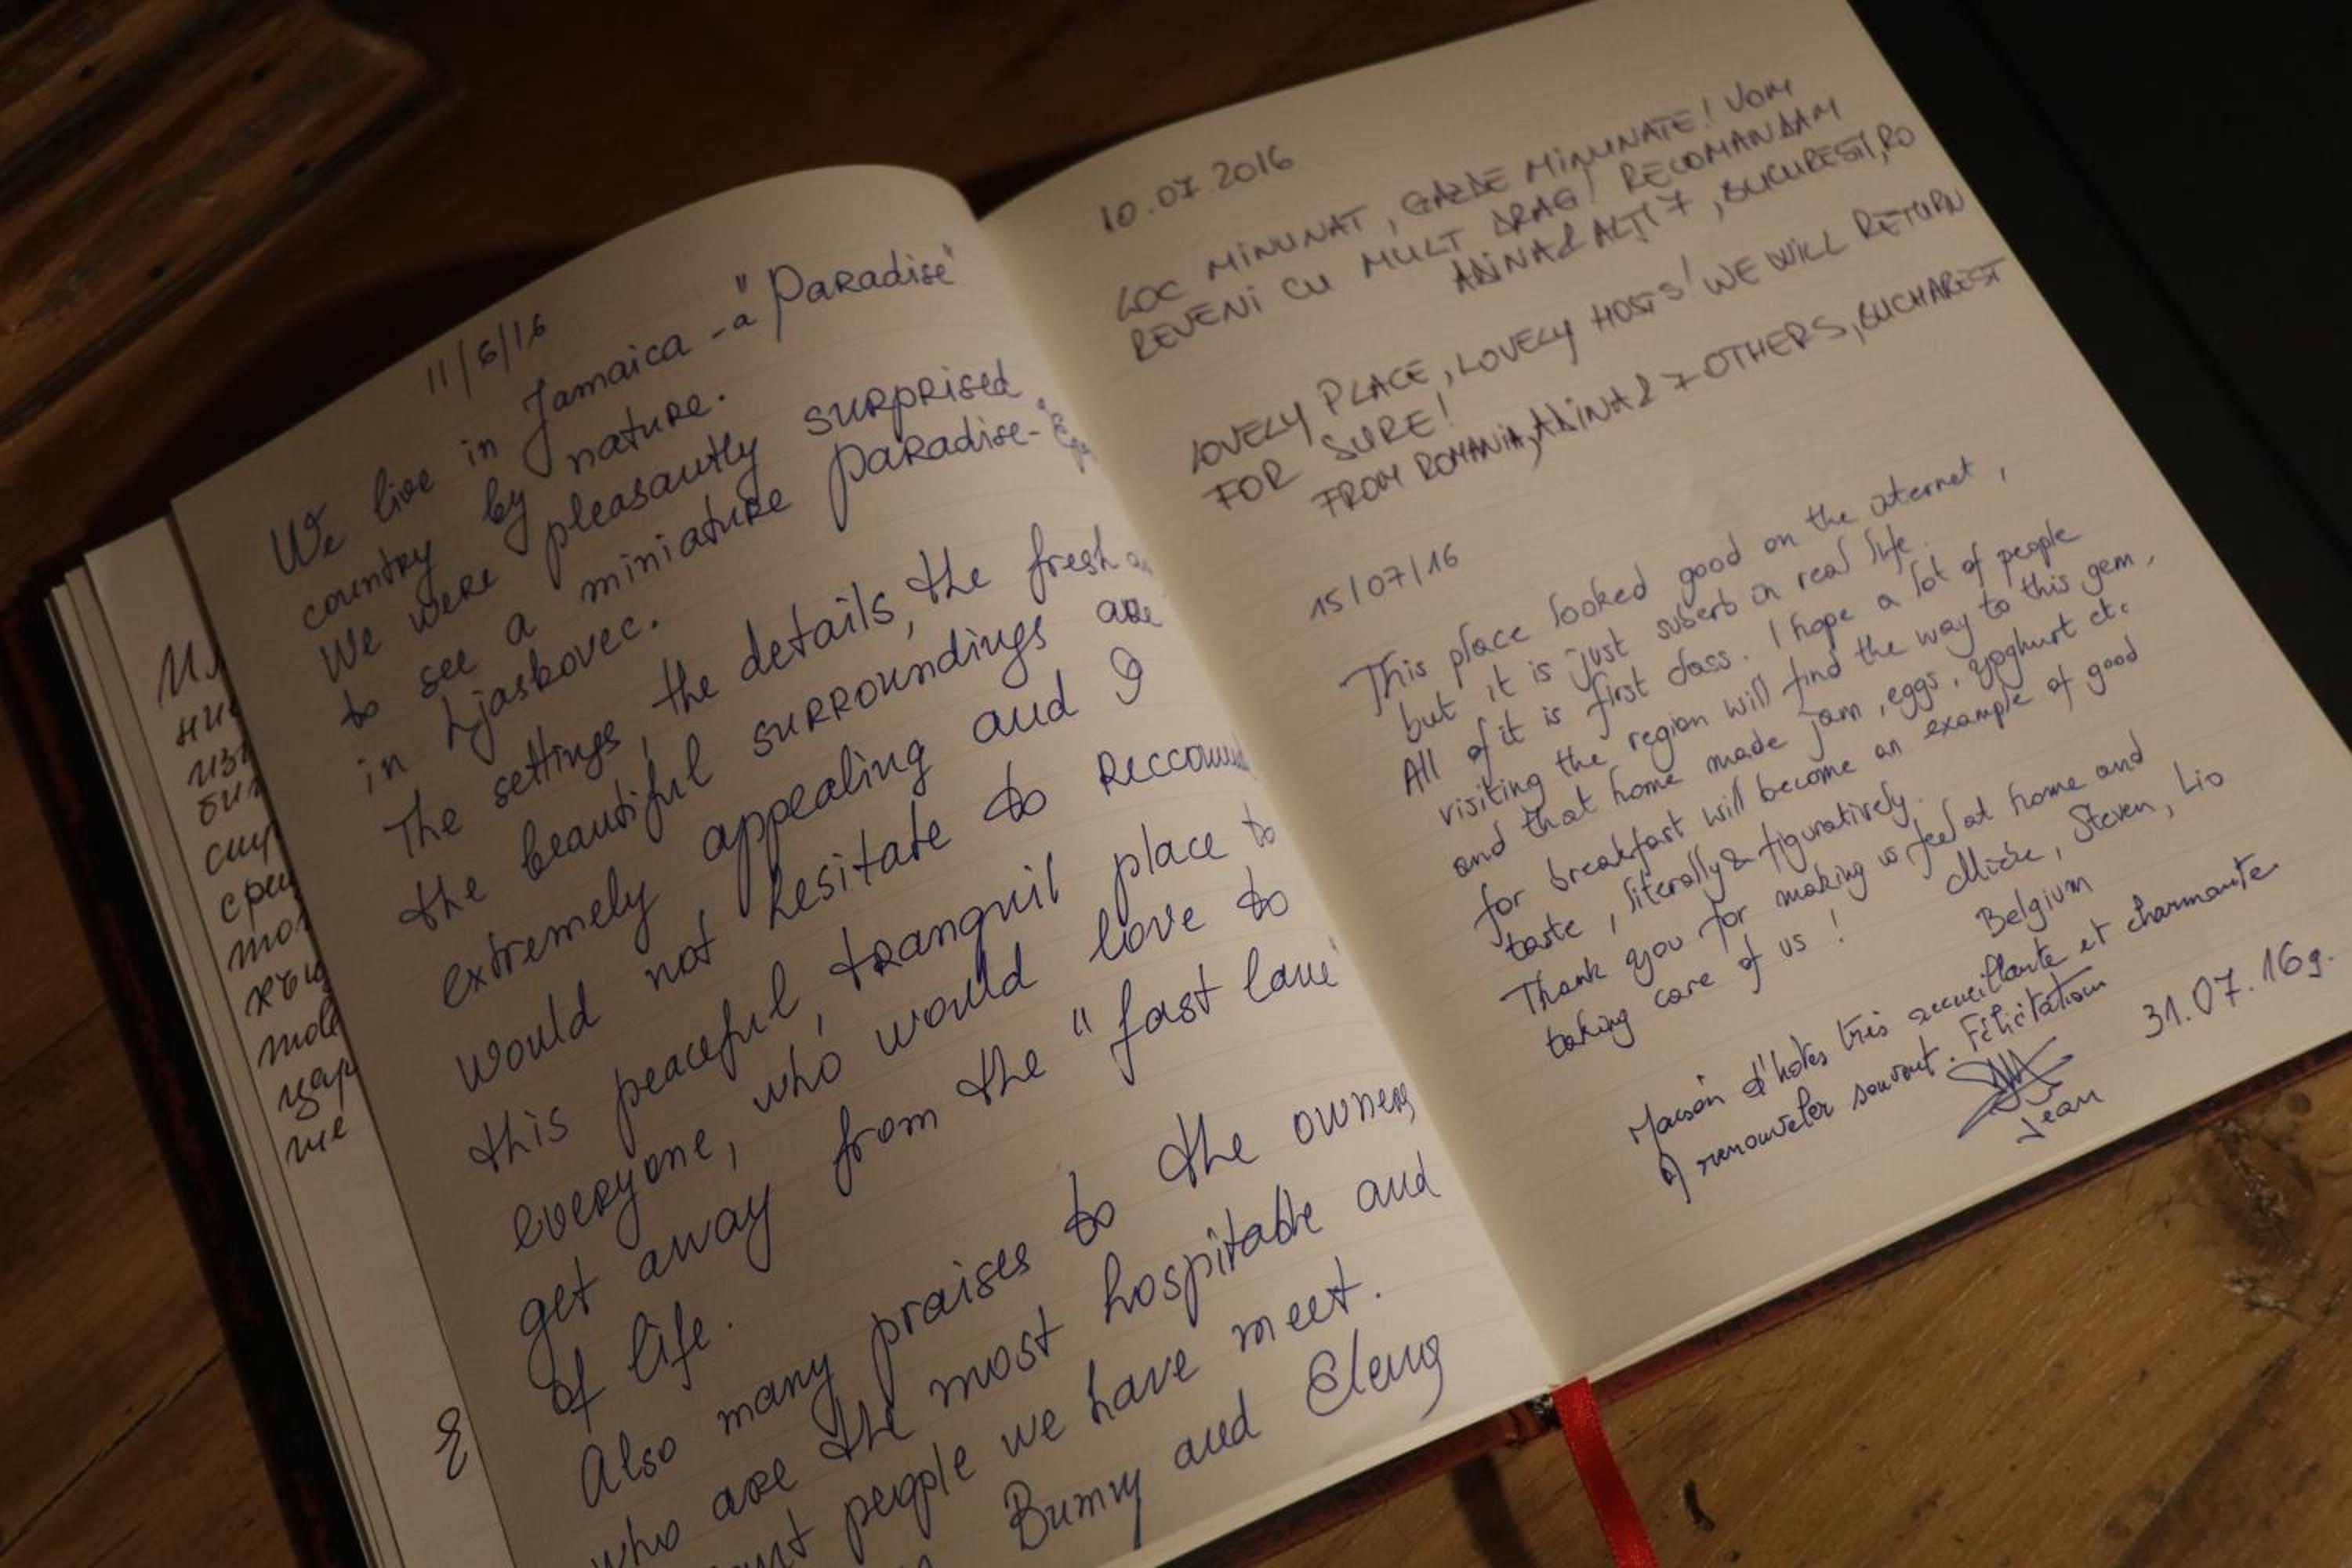 Ми
ни
изг
бил
сиу
сре
мол
къщ
мов
цар
ше
11/6/16
We live in Jamaica - a "Paradise"
country by nature.
We were pleasantly surprised
to see a miniature paradise -
in Ljaskovec.
The settings, the details, the fresh
the beautiful surroundings are
extremely appealing and I
would not hesitate to reccom
this peaceful, tranquil place to
everyone, who would love to
get away from the "fast lane"
of life.
Also many praises to the owners
who are the most hospitable and
people we have meet.
Bunny and Elena
10.07.2016
LOC MINUNAT, GAZDE MINUNATE! VOM
REVENI CU MULT DRAG! RECOMANDAM
ADINA & ALȚI 7, BUCUREȘTI, RO
LOVELY PLACE, LOVELY HOSTS! WE WILL RETURN
FOR SURE!
FROM ROMANIA, ADINA & 7 OTHERS, BUCHAREST
15/07/16
This place looked good on the internet,
but it is just suberb in real life.
All of it is first class. I hope a lot of people
visiting the region will find the way to this gem,
and that home made jam, eggs, yoghurt etc
for breakfast will become an example of good
taste, literally & figuratively.
Thank you for making us feel at home and
taking care of us!
Mieke, Steven, Lio
Belgium
Maison d'hôtes très accueillante et charmante
à renouveler souvent. Félicitation
Jean
31.07.16g.